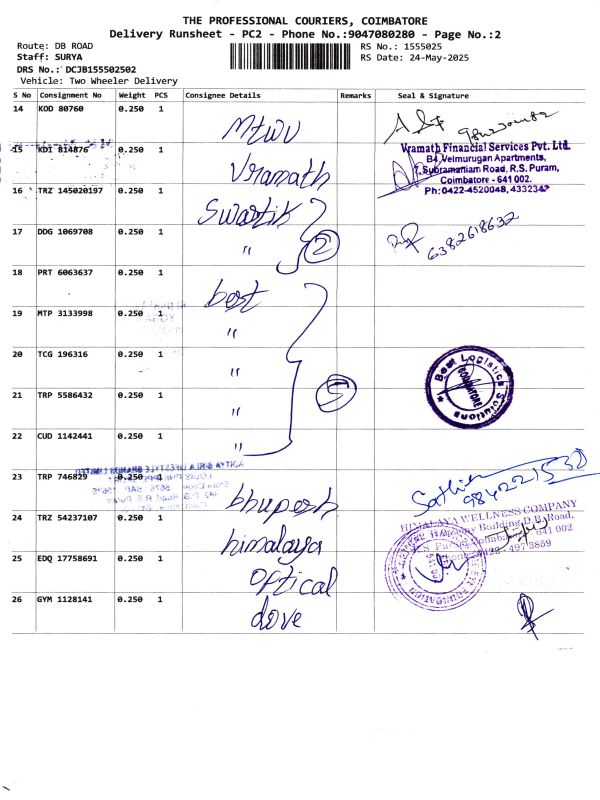 THE PROFESSIONAL COURIERS, COIMBATORE
Delivery Runsheet - PC2 - Phone No.:9047080280 - Page No.:2
Route: DB ROAD
RS No.: 1555025
Staff: SURYA
RS Date: 24-May-2025
DRS No.: DCJB155502502
Vehicle: Two Wheeler Delivery
S No Consignment No Weight PCS Consignee Details Remarks Seal & Signature
14 KOD 80760 0.250 1 Mtwu
15 KDI 814876 0.250 1 Vramath
Vramath Financial Services Pvt. Ltd.
B4, Velmurugan Apartments,
T. Subramaniam Road, R.S. Puram,
Coimbatore - 641 002.
Ph: 0422-4520048, 433234
16 TRZ 145020197 0.250 1 Swastik
17 DDG 1069708 0.250 1 " 2 6382618632
18 PRT 6063637 0.250 1 best
19 MTP 3133998 0.250 1 "
20 TCG 196316 0.250 1 "
Best Logistics Solutions
COIMBATORE
21 TRP 5586432 0.250 1 " 5
22 CUD 1142441 0.250 1 "
23 TRP 746829 0.250 1 bhupesh
ADITYA BIRLA LIFESTYLE BRANDS LIMITED
24 TRZ 54237107 0.250 1 himalaya
HIMALAYA WELLNESS COMPANY
25 EDQ 17758691 0.250 1 optical
26 GYM 1128141 0.250 1 dove